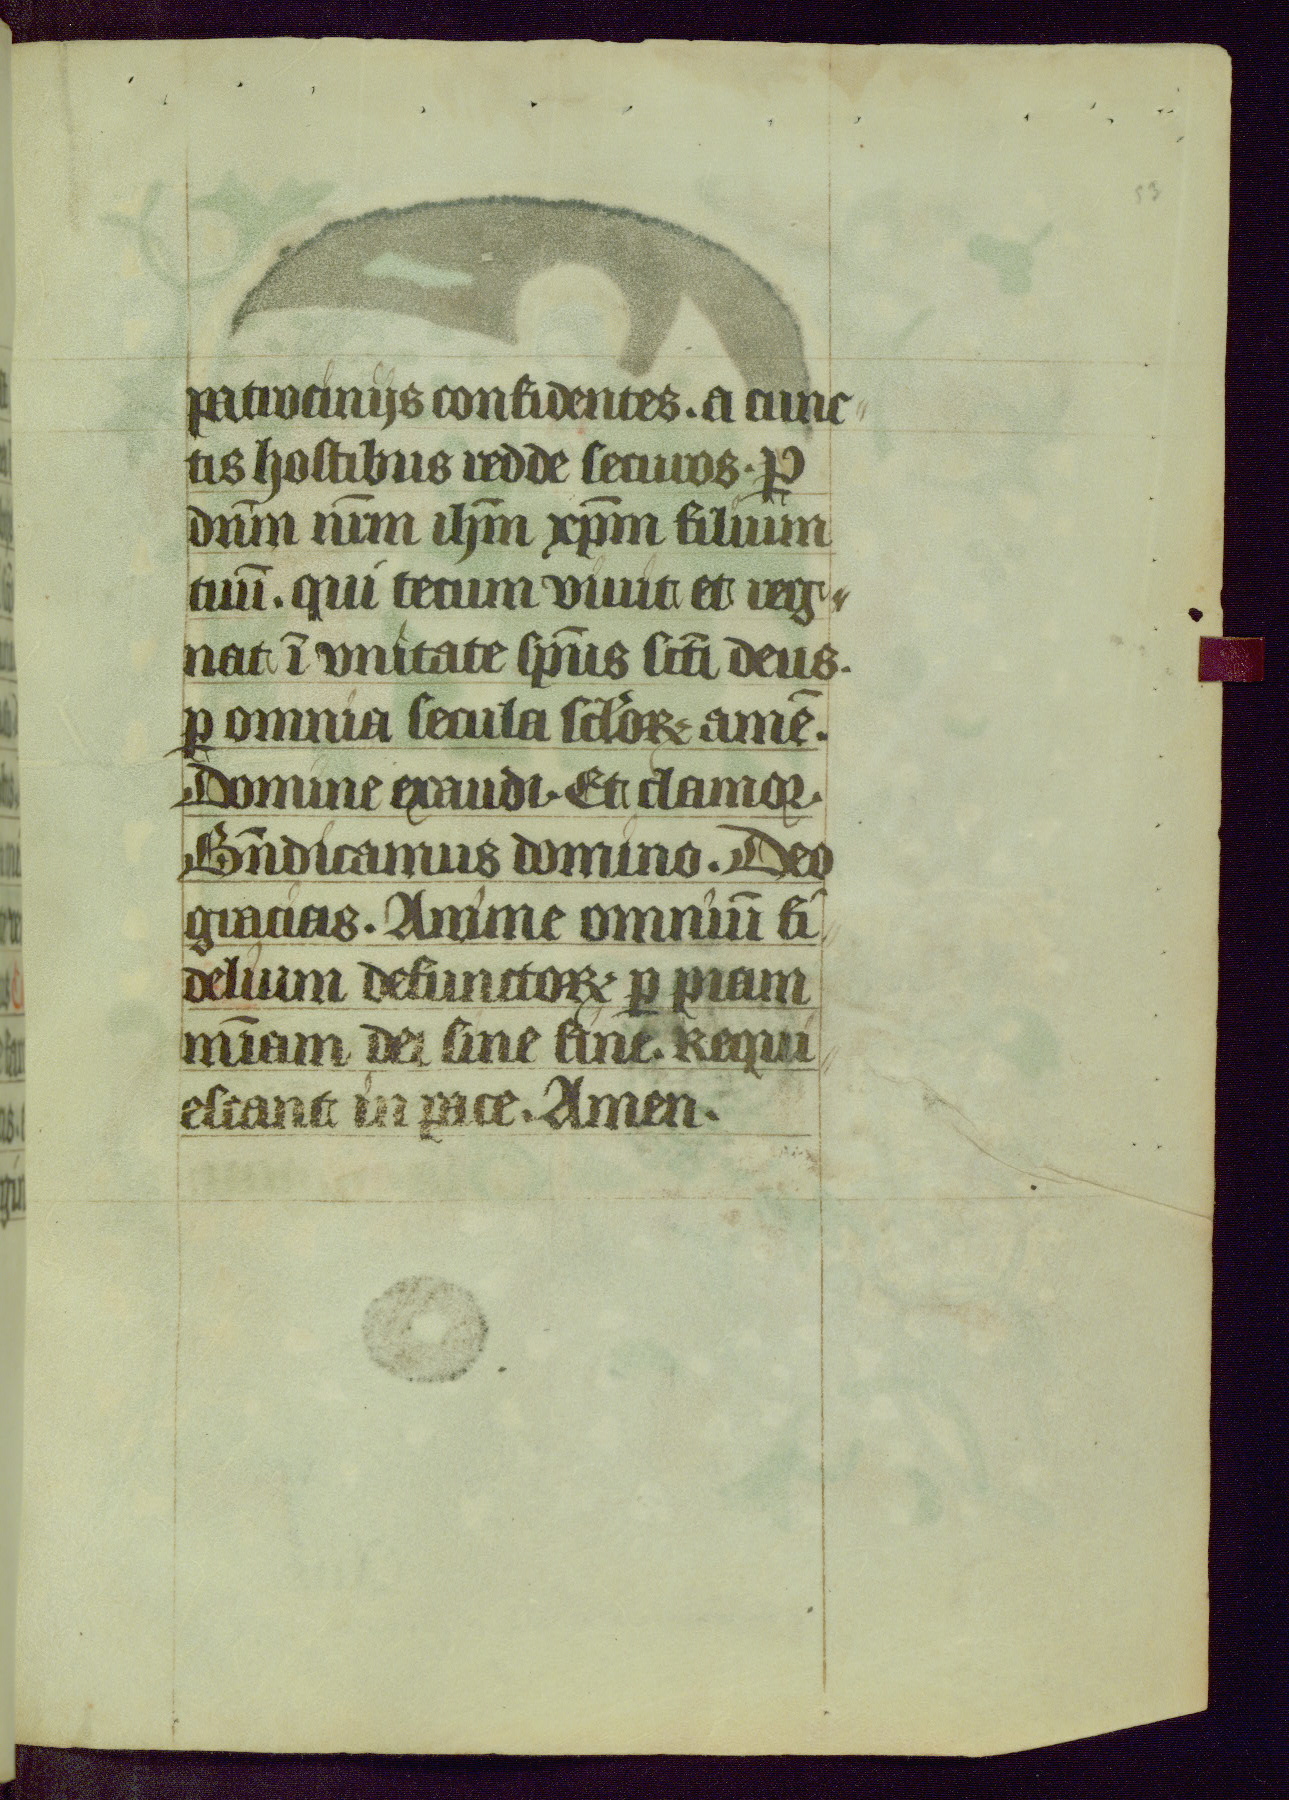 53
patrocinijs confidentes. a cunc〃
tis hostibus redde securos. P
dn̄m nr̄m ih̄m xp̄m filium
tuū. qui tecum viuit et reg〃
nat ī vnitate sp̄us sc̄ti deus.
ꝑ omnia secula sclōꝝ amē.
Domine exaudi. Et clamor.
Bn̄dicamus domino. Deo
gracias. Anime omniū fi〃
delium defunctoꝝ ꝑ piam
mīam dei sine fine. Requi〃
escant in pace. Amen.